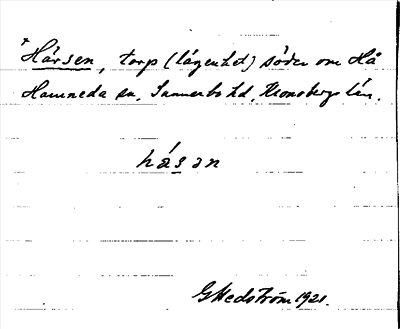 *Hårsen, torp (lägenhet) söder om Hå
Hamneda sn, Sunnerbo hd, Kronobergs län.
hásan
G Hedström 1921.